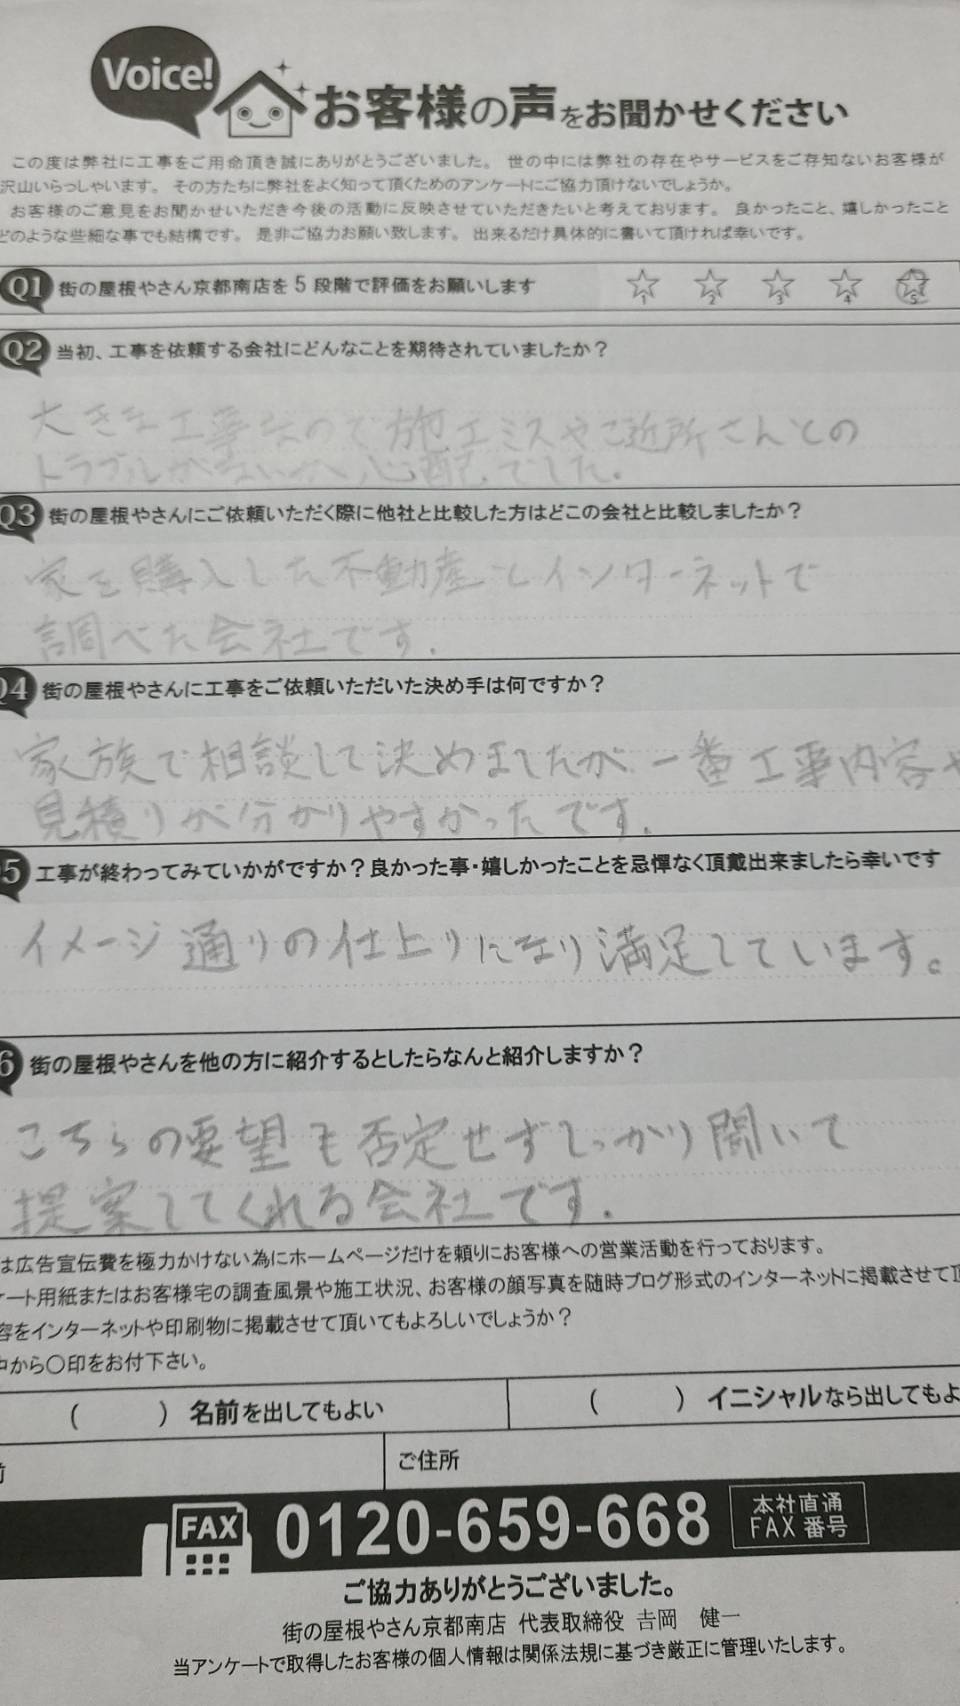 Voice!
お客様の声をお聞かせください
この度は弊社に工事をご用命頂き誠にありがとうございました。 世の中には弊社の存在やサービスをご存知ないお客様が
沢山いらっしゃいます。 その方たちに弊社をよく知って頂くためのアンケートにご協力頂けないでしょうか。
お客様のご意見をお聞かせいただき今後の活動に反映させていただきたいと考えております。 良かったこと、嬉しかったこと
どのような些細な事でも結構です。 是非ご協力お願い致します。 出来るだけ具体的に書いて頂ければ幸いです。
Q1 街の屋根やさん京都南店を5段階で評価をお願いします ☆1 ☆2 ☆3 ☆4 ☆5
Q2 当初、工事を依頼する会社にどんなことを期待されていましたか？
大きな工事なので施工ミスやご近所さんとの
トラブルがないか心配でした。
Q3 街の屋根やさんにご依頼いただく際に他社と比較した方はどこの会社と比較しましたか？
家を購入した不動産とインターネットで
調べた会社です.
Q4 街の屋根やさんに工事をご依頼いただいた決め手は何ですか？
家族で相談して決めましたが、一番工事内容や
見積りが分かりやすかったです.
Q5 工事が終わってみていかがですか？良かった事・嬉しかったことを忌憚なく頂戴出来ましたら幸いです
イメージ通りの仕上りになり満足しています。
6 街の屋根やさんを他の方に紹介するとしたらなんと紹介しますか？
こちらの要望も否定せずしっかり聞いて
提案してくれる会社です.
は広告宣伝費を極力かけない為にホームページだけを頼りにお客様への営業活動を行っております。
ケート用紙またはお客様宅の調査風景や施工状況、お客様の顔写真を随時ブログ形式のインターネットに掲載させて頂
容をインターネットや印刷物に掲載させて頂いてもよろしいでしょうか？
中から〇印をお付下さい。
( ) 名前を出してもよい ( ) イニシャルなら出してもよ
前 ご住所
FAX 0120-659-668 本社直通
FAX番号
ご協力ありがとうございました。
街の屋根やさん京都南店 代表取締役 吉岡 健一
当アンケートで取得したお客様の個人情報は関係法規に基づき厳正に管理いたします。